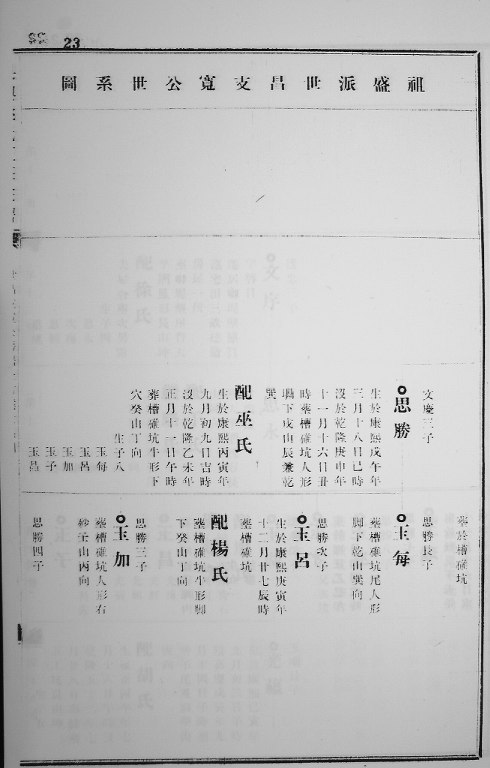 23
祖盛派世昌支寬公世系圖
文慶三子
思勝
生於康熙戊午年
三月十八日巳時
沒於乾隆庚申年
十一月十六日丑
時葬槽碓坑人形
腳下戌山辰兼乾
巽
配巫氏
生於康熙丙寅年
九月初九日吉時
沒於乾隆乙未年
正月十一日午時
葬槽碓坑牛形下
穴癸山丁向
生子八
玉每
玉呂
玉加
玉子
玉昌
葬於槽碓坑
思勝長子
玉每
葬槽碓坑尾人形
腳下乾山巽向
思勝次子
玉呂
生於康熙庚寅年
十二月廿七辰時
葬槽碓坑
配楊氏
葬槽碓坑牛形腳
下癸山丁向
思勝三子
玉加
葬槽碓坑人形右
壬山丙向
思勝四子